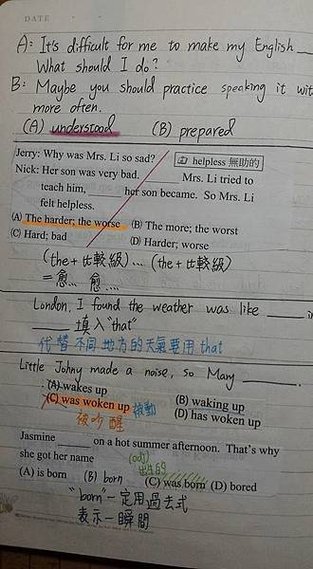 DATE
A: It's difficult for me to make my English
What should I do?
B: Maybe you should practice speaking it wit
more often.
(A) understood (B) prepared
Jerry: Why was Mrs. Li so sad?
helpless 無助的
Nick: Her son was very bad. Mrs. Li tried to
teach him, ____ her son became. So Mrs. Li
felt helpless.
(A) The harder; the worse (B) The more; the worst
(C) Hard; bad (D) Harder; worse
(the+比較級)... (the+比較級)
=愈... 愈....
London, I found the weather was like ____ in
____ 填入"that"
代替不同地方的天氣要用that
Little Johny made a noise, so Mary ____.
(A) wakes up (B) waking up
(C) was woken up 被動 (D) has woken up
被吵醒
Jasmine ____ on a hot summer afternoon. That's why
she got her name
(adj)
出生的
(A) is born (B) born (C) was born (D) bored
"born"一定用過去式
表示一瞬間